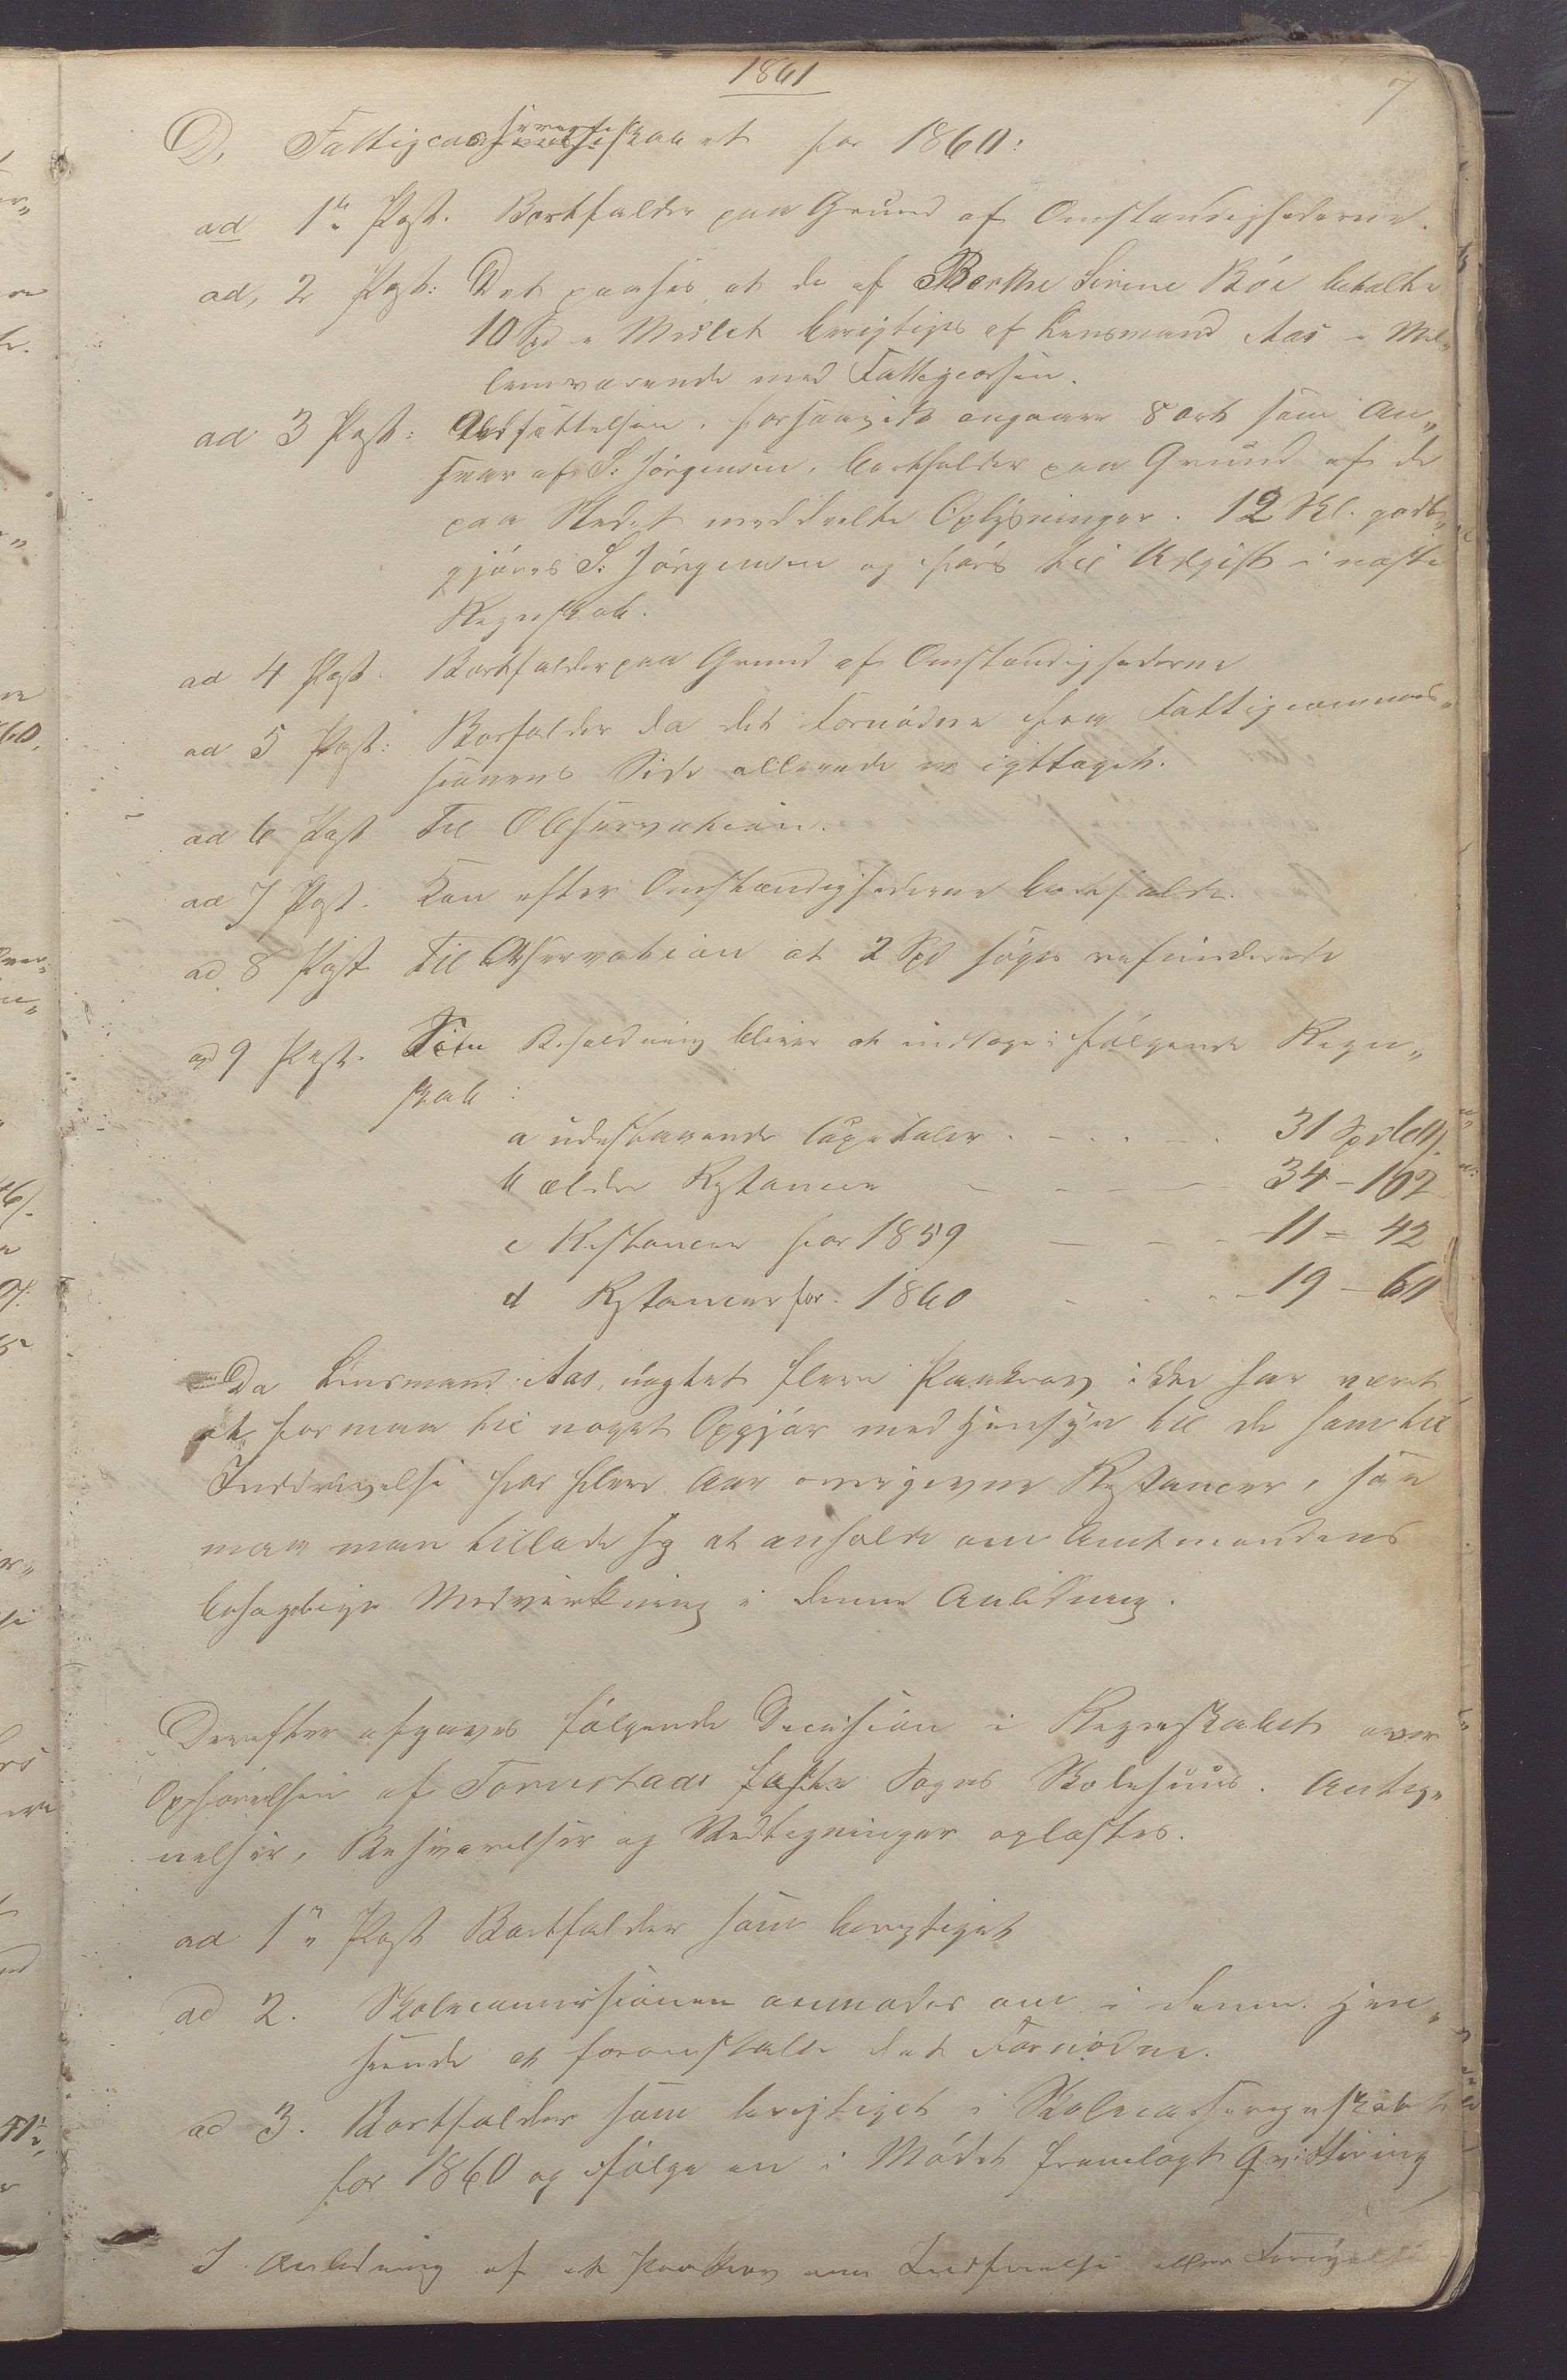 1861
7
D, Fattigcasseregnskabet for 1860:
ad 1ste Post. Bortfalder paa Grund af Omstændighederne.
ad, 2 Post: Det paasees, at de af Berthe Serine Böe betalte
10 Spd i Mulct berigtiges af Lensmand Aas i Mel„
lemværende med Fattigcassen.
ad 3 Post: Udsættelsen, forsaavidt angaaer 8 ort som An„
svar af S: Jörgensen, bortfalder paa Grund af de
paa Stedet meddeelte Oplysninger. 12 Sk. godt„
gjöres S: Jörgensen og föres til Udgift i næste
Regnskab.
ad 4 Post. Bortfalder paa Grund af Omstændighederne
ad 5 Post: Borfalder da det Fornödne fra Fattigcommis„
sionens Side allerede er iagttaget.
ad 6 Post Til Observation.
ad 7 Post. Kan efter Omstændighederne bortfalde.
ad 8 Post Til Observation at 2 Spd söges refunderede
ad 9 Post. Som Beholdning bliver at indtage i fölgende Regn„
skab:
a udestaaende Capitaler . - . . - . 31 Spd 60 s.
b ældre Restancer - - - - 34 - 102
c Restancer for 1859 - - - 11 - 42
d Restancer for 1860 - . . - 19 - 60
Da Lensmand Aas, uagtet flere Paakrav ikke har været
at formaa til noget Opgjör med Hensyn til de ham til
Inddrivelse for flere Aar overgivne Restancer, saa
maa man tillade sig at anholde om Amtmandens
behagelige Medvirkning i denne Anledning.
Derefter afgaves fölgende Decision i Regnskabet over
Opförelsen af Torvestads faste Sogns Skolehuus. Anteg„
nelser, Besvarelser og Vedtegninger oplæstes.
ad 1ste Post Bortfalder som berigtiget
ad 2. Skolecommissionen anmodes om i denne Hen„
seende at foranstalte det Fornödne.
ad 3. Bortfalder som berigtiget i Skolecasseregnskabet
for 1860 og fölge en i Mödet fremlagt Qvittering
I Anledning af et Paakrav om Indfrielse eller Fornyelse